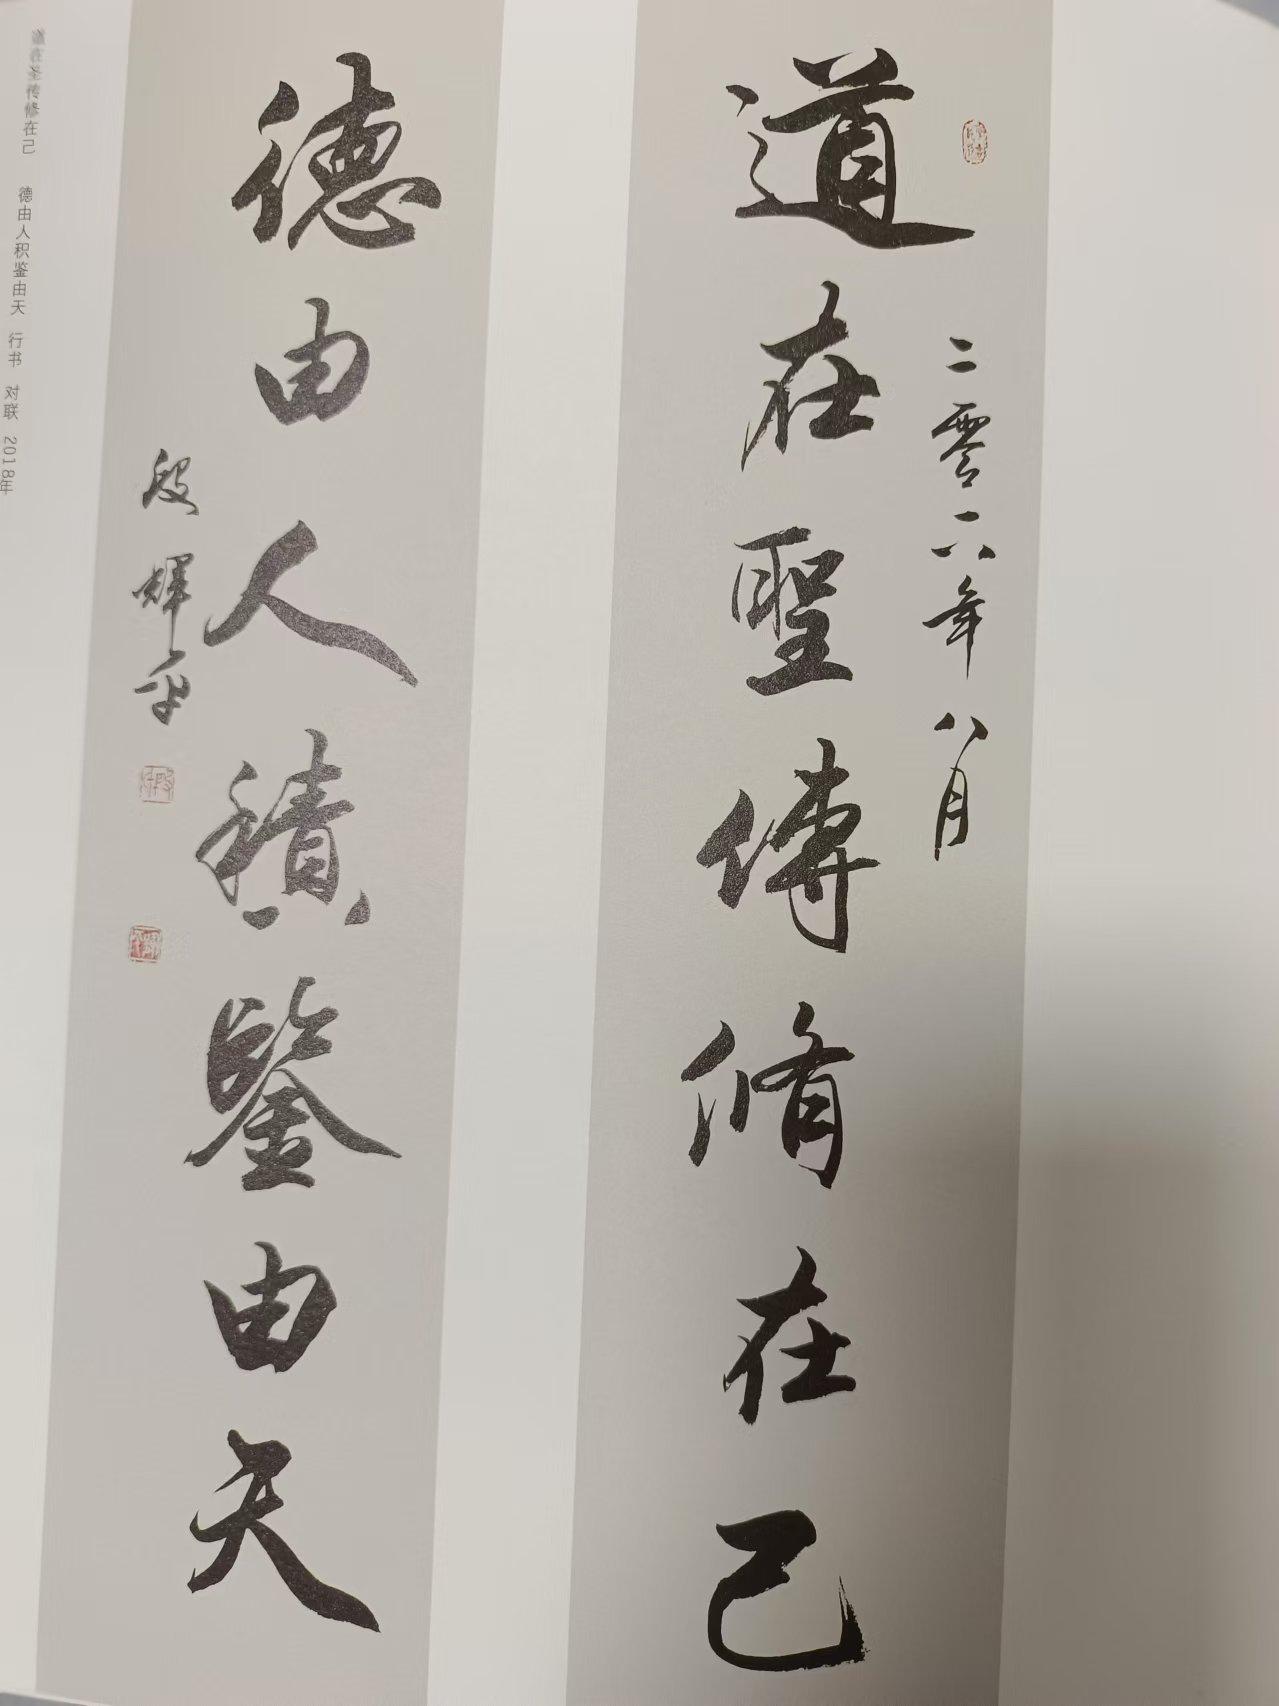 道在聖傳修在己
二零一八年八月
德由人積鑒由天
殷輝平
道在圣传修在己 德由人积鉴由天 行书 对联 2018年